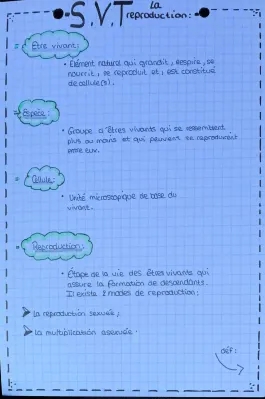 S.V.T la reproduction:
Être vivant:
• Elément naturel qui grandit, respire, se
nourrit, se reproduit et, est constitué
de cellule(s).
Espèce:
• Groupe d'êtres vivants qui se ressemblent
plus ou moins et qui peuvent se reproduirent
entre eux.
Cellule:
• Unité microscopique de base du
vivant.
Reproduction:
• Étape de la vie des êtres vivants qui
assure la formation de descendants.
Il existe 2 modes de reproduction:
➤ la reproduction sexuée;
➤ la multiplication asexuée.
def: